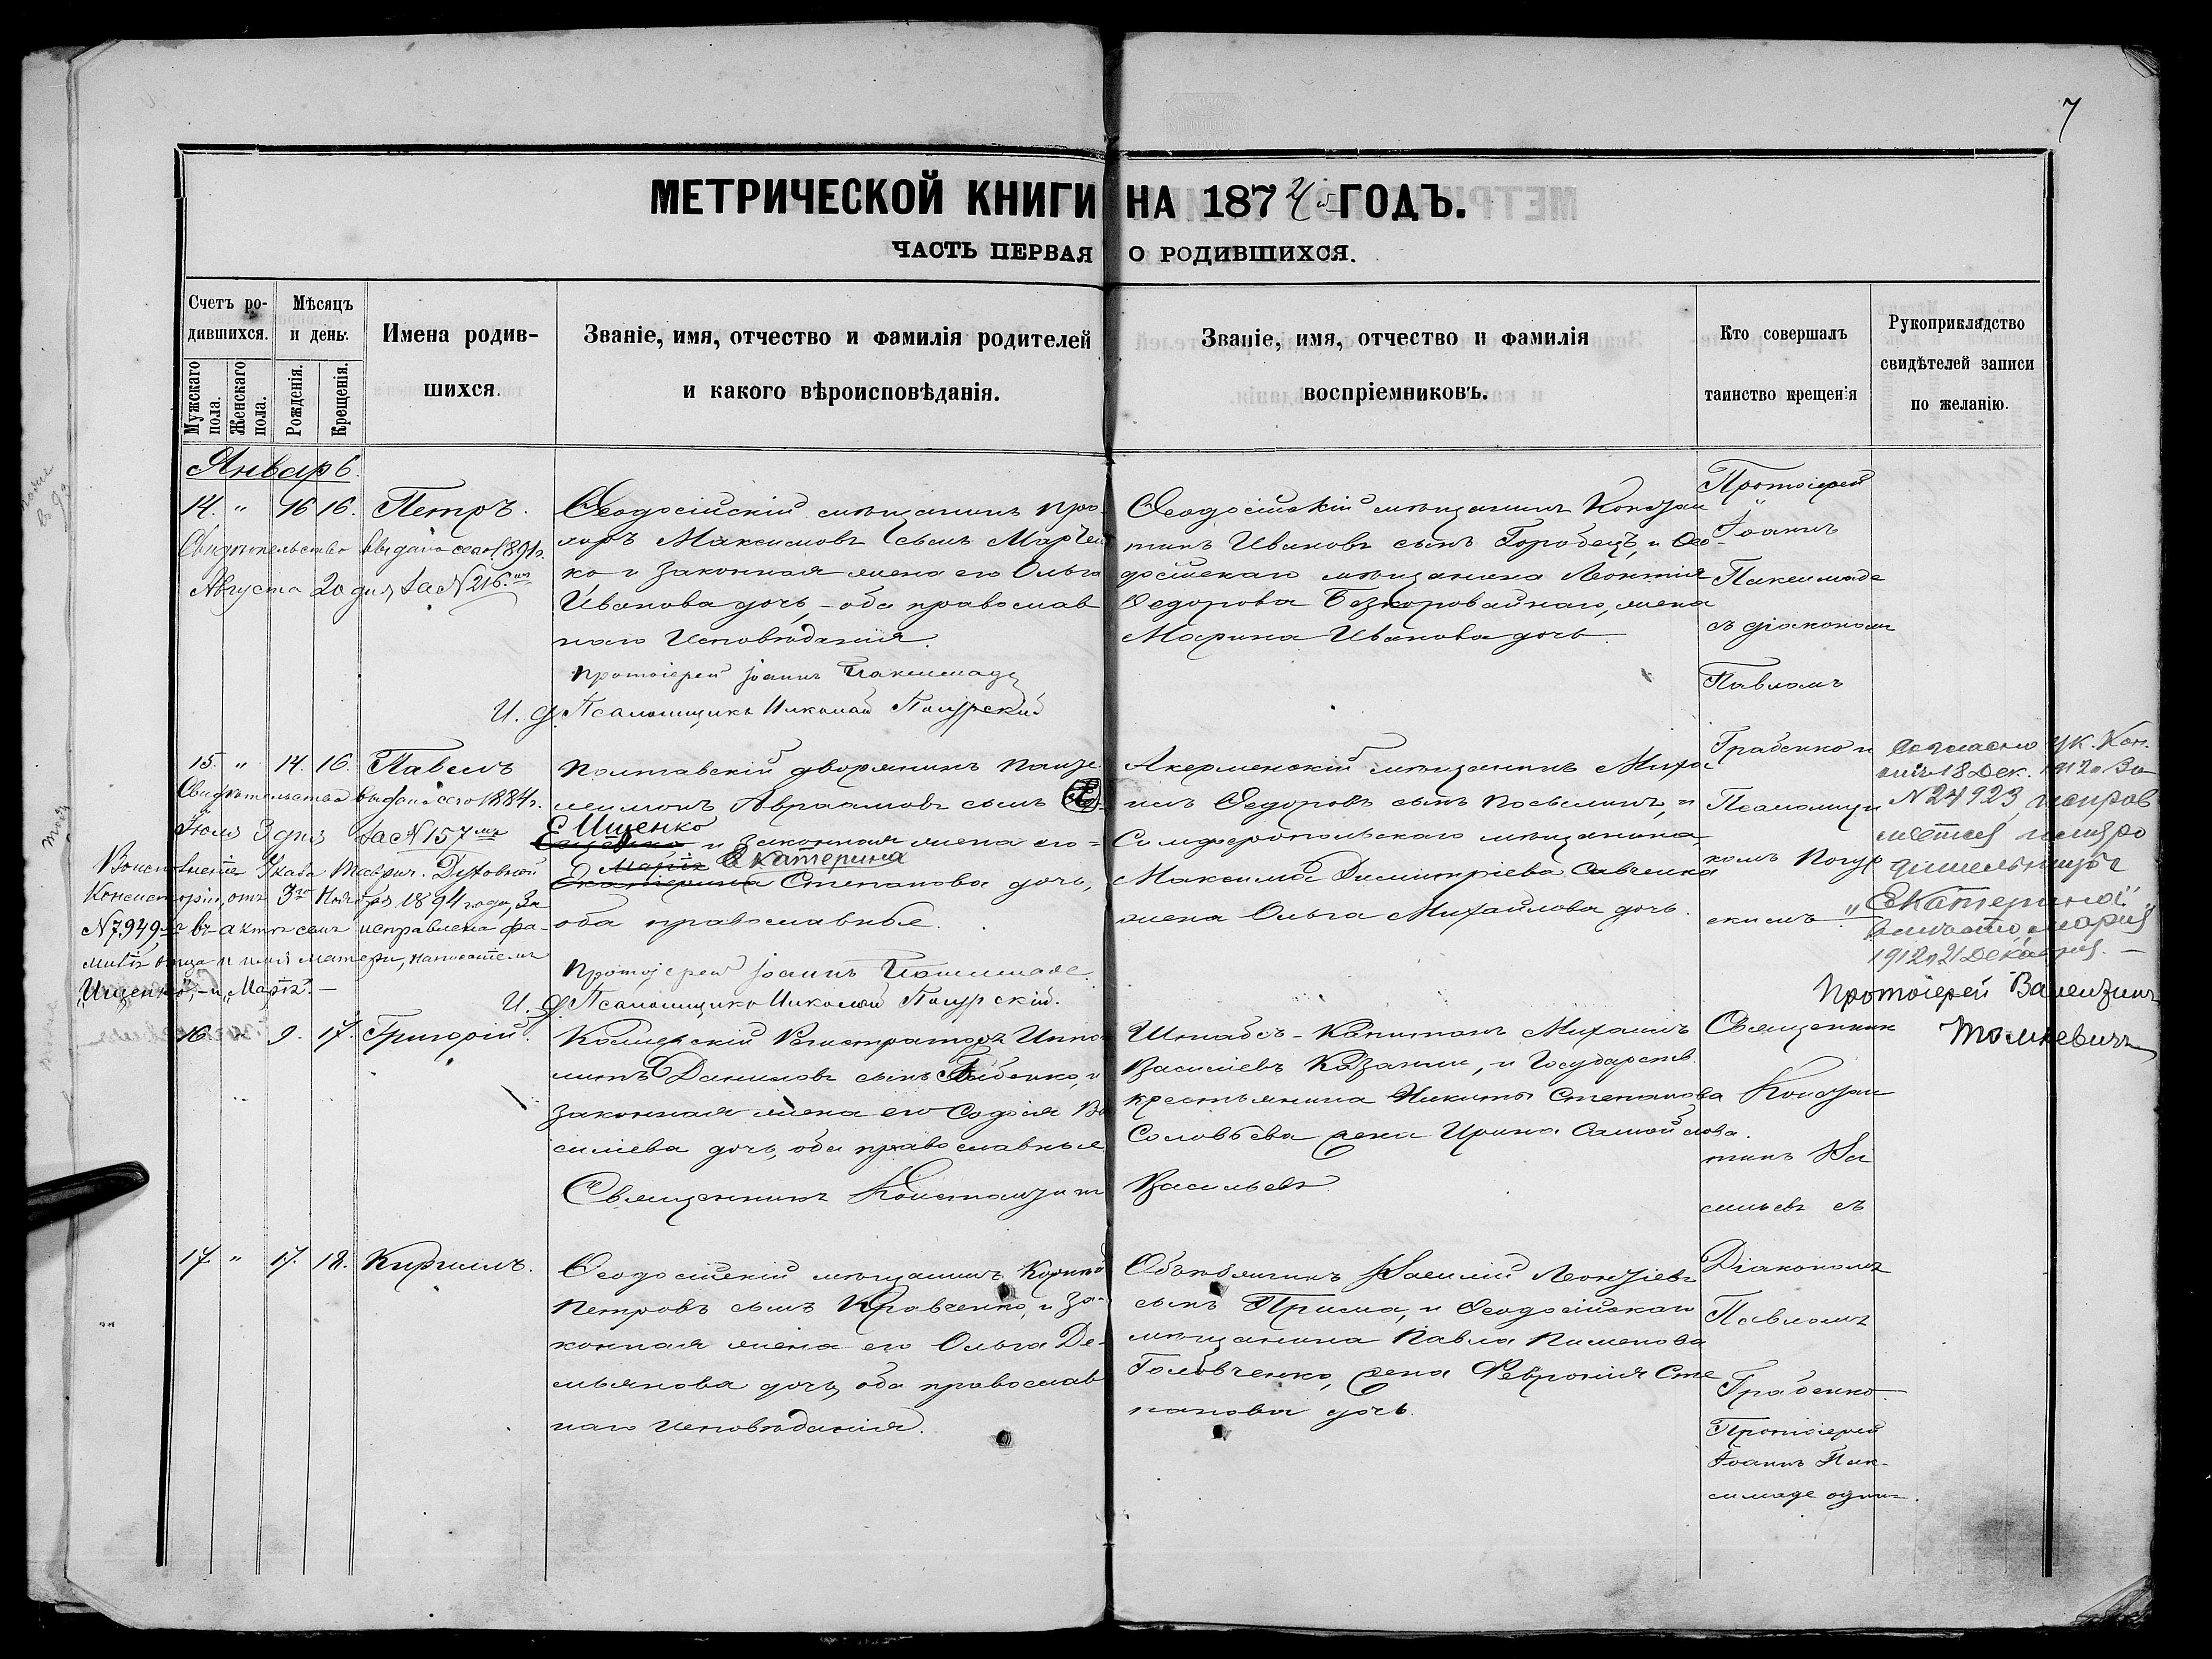 7
МЕТРИЧЕСКОЙ КНИГИ НА 1874й ГОДЪ.
ЧАСТЬ ПЕРВАЯ О РОДИВШИХСЯ.
Счетъ ро-
дившихся.
Мужскаго пола.
Женскаго пола.
Мѣсяцъ
и день.
Рожденія.
Крещенія.
Имена родив-
шихся.
Званіе, имя, отчество и фамилія родителей
и какого вѣроисповѣданія.
Званіе, имя, отчество и фамилія
воспріемниковъ.
Кто совершалъ
таинство крещенія
Рукоприкладство
свидѣтелей записи
по желанію.
Январь
14. " 16 16. Петръ.
Свидѣтельство выдано сего 1891 г.
Августа 20 дня за N 216.мъ
Ѳеодосійскій мѣщанинъ Про-
хоръ Максимовъ сынъ Марчен
ко и законная жена его Ольга
Иванова дочь, - оба православ
наго Исповѣданія.
Протоіерей Іоаннъ Паксимаде
И. д. Псаломщика Николай Погурский
Ѳеодосійскій мѣщанинъ Констан
тинъ Ивановъ сынъ Горобецъ, и Ѳео-
досійскаго мѣщанина Леонтія
Ѳедорова Безкоровайнаго, жена
Марина Иванова дочь
Протоіерей
Іоаннъ
Паксимаде
съ діакономъ
Павломъ
Грабенко и
Псаломщи
комъ Погур
скимъ
15. " 14. 16. Павелъ
Свидѣтельство выдано сего 1884 г.
Іюля 3 дня за N 157 мъ
Во исполненіе Указа Таврич. Духовной
Консисторіи, отъ 3го Ноября 1894 года, за
N 7949, въ актѣ семъ исправлена фа-
милія отца и имя матери, написаніемъ
"Ищенко", - и "Марія". -
Полтавскій дворянинъ Панте
леимонъ Авраамовъ сынъ
Ищенко
и законная жена его -
Марія Екатерина
Екатерина Степанова дочь,
оба православные.
Протоіерей Іоаннъ Паксимаде.
И. д. Псаломщика Николай Погурскій.
Акерменскій мѣщанинъ Миха
илъ Ѳедоровъ сынъ и
Симферопольскаго мѣщанина
Максима Димитріева Савченка
жена Ольга Михайлова дочь.
Согласно Ук. Кон.
отъ 18 Дек. 1912 г. За
N 24923, исправ
Екатериной"
вмѣсто "Марія"
1912 г. 21 Декабря. -
Протоіерей Валентинъ
Томкевичъ
16. " 9. 17. Григорій.
Коллежскій Регистраторъ Иппо
литъ Даниловъ сынъ и
законная жена его Софія Ва
силіева дочь, оба православные
Священникъ Константинъ Васильевъ
Штабсъ-Капитанъ Михаилъ
Василіевъ и Государств.
крестьянина Никиты Степанова
Соловьева жена Ирина Самойлова.
Священник
Констан
тинъ Ва
сильевъ съ
Діакономъ
Павломъ
Грабенко
17. " 17. 18. Кириллъ.
Ѳеодосійскій мѣщанинъ Корній
Петровъ сынъ Кравченко, и за-
конная жена его Ольга Де-
мьянова дочь, оба православ
наго исповѣданія.
Объѣзчикъ Василій Леонтіевъ
сынъ и Ѳеодосійскаго
мѣщанина Павла Пименова
Головченко, жена Февронія Сте
панова дочь.
Протоіерей
Іоаннъ Пак-
симаде одинъ.